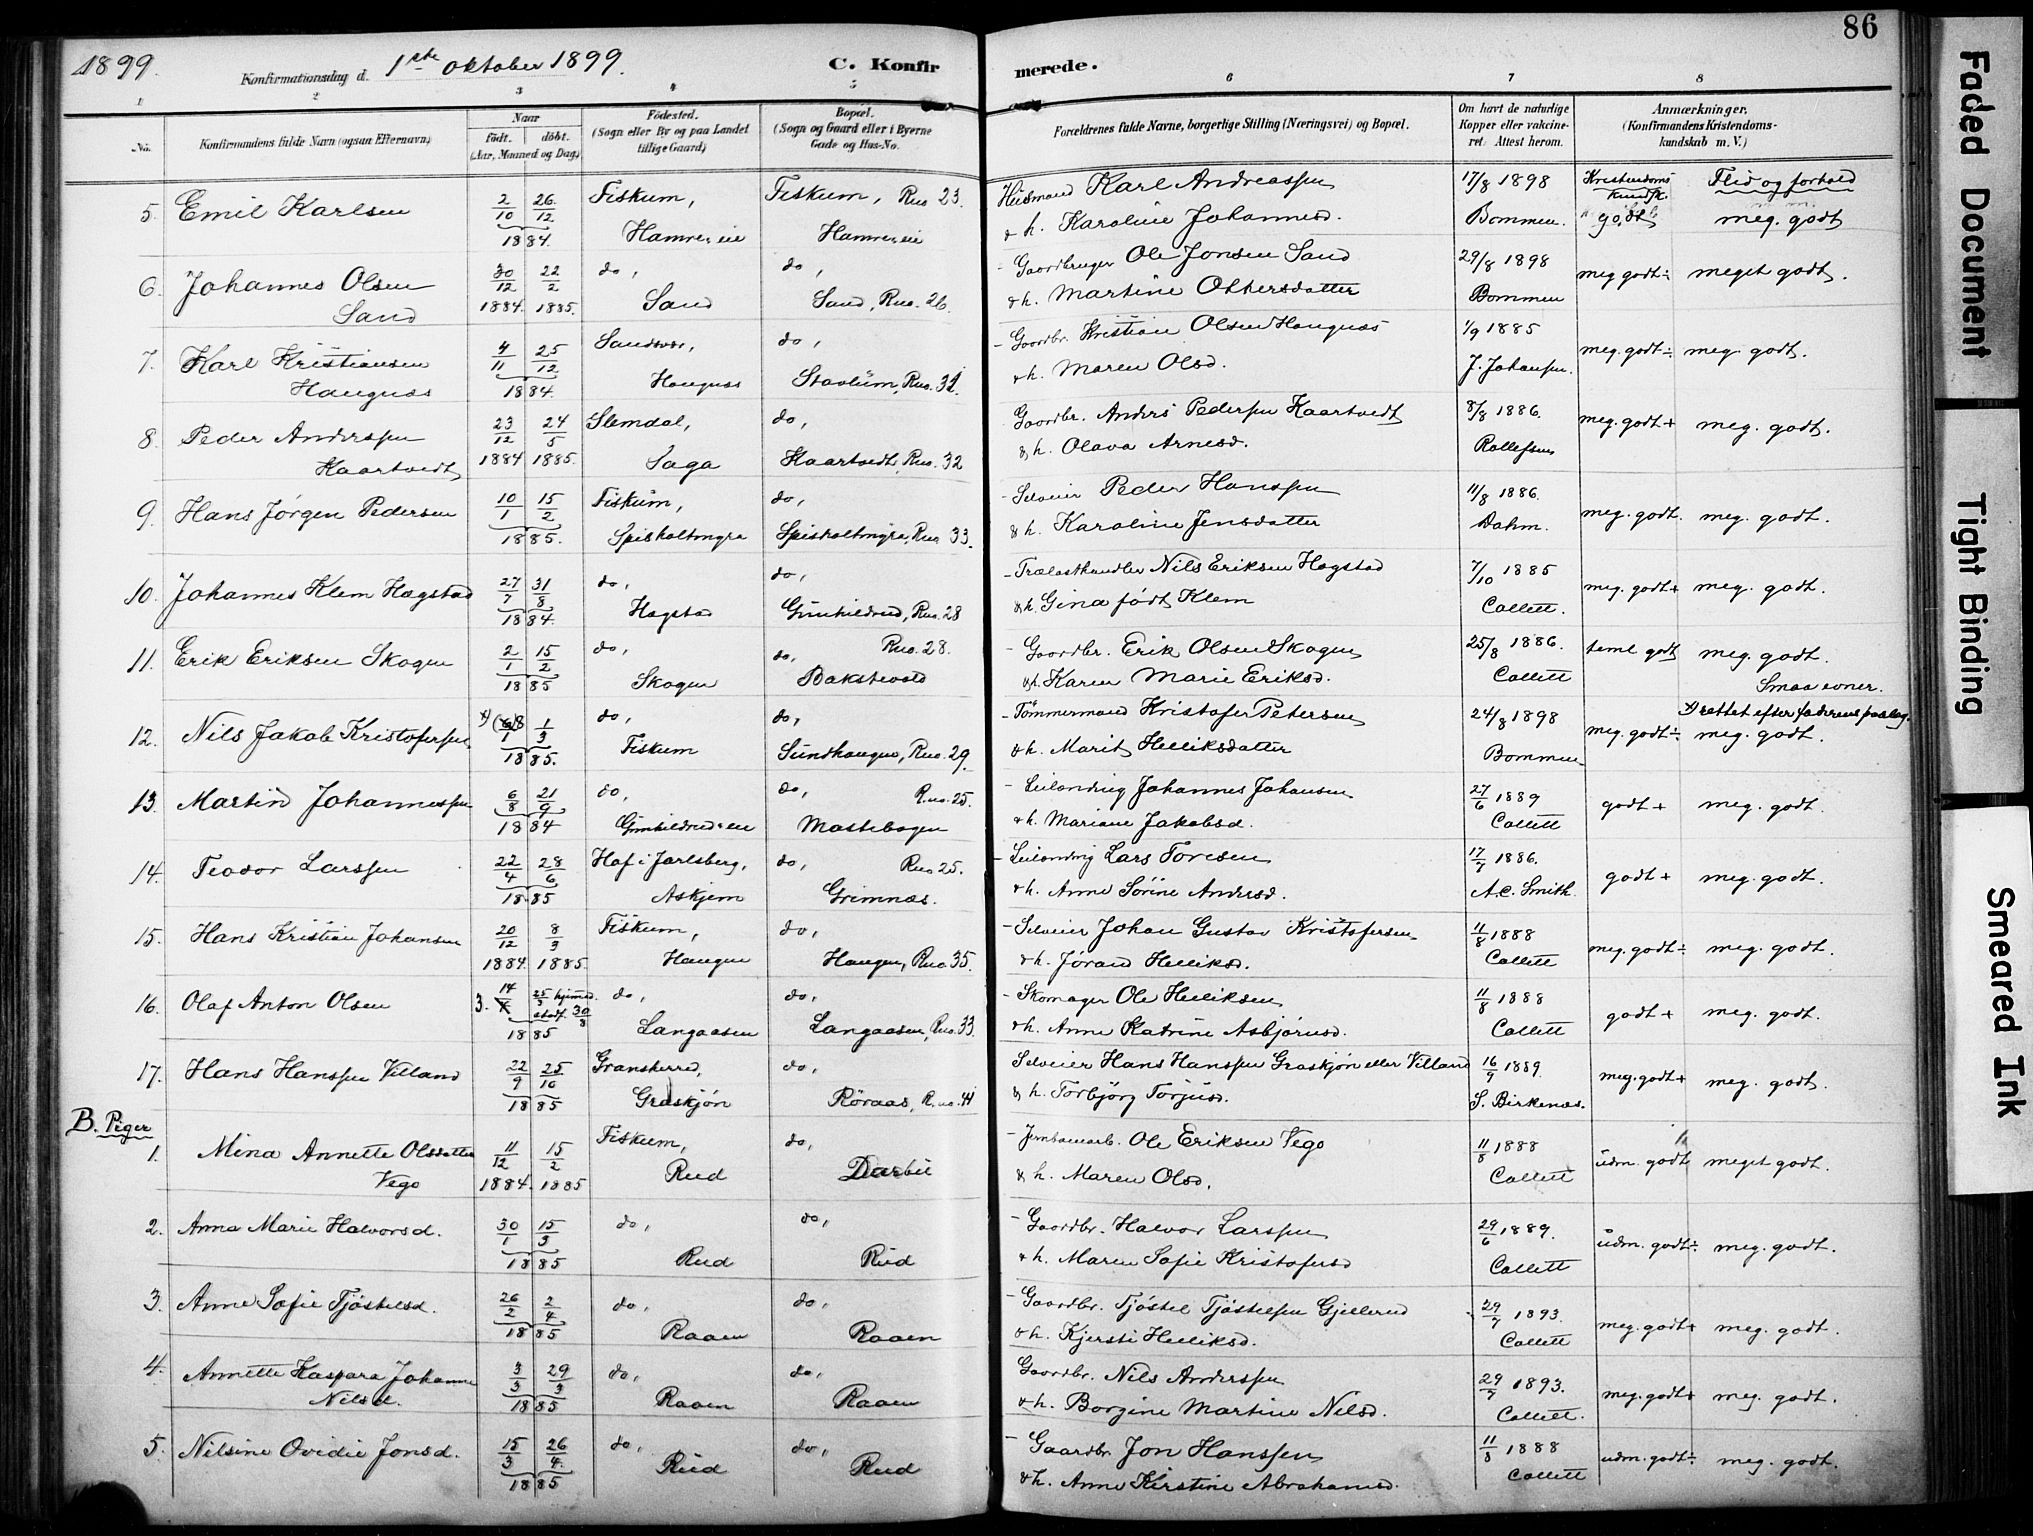 86
1899.
Konfirmationsdag d. 1ste oktober 1899.
C. Konfirmerede.
1 2 3 4 5 6 7 8
No.
Konfirmandens fulde Navn (ogsaa Efternavn)
Naar
födt. döbt.
(Aar, Maaned og Dag)
Födested.
(Sogn eller By og paa Landet
tillige Gaard)
Bopæl.
(Sogn og Gaard eller i Byerne
Gade og Hus-No.
Forældrenes fulde Navne, borgerlige Stilling (Næringsvei) og Bopæl.
Om havt de naturlige
Kopper eller vakcine-
ret. Attest herom.
Anmærkninger.
(Konfirmandens Kristendoms-
kundskab m. V.)
5. Emil Karlsen 2/10 26/12 1884. Fiskum, Hamre, eie Fiskum, Rno 23. Hamre, eie
Husmand Karl Andreassen & h. Karoline Johannesd. 17/8 1898 Bommen. Kristendoms kundsk. godt Flid og forhold meg. godt
6. Johannes Olsen Sand 30/12 1884. 22/2 1885. do, Sand do, Sand, Rno. 26.
- Gaardbruger Ole Jonsen Sand & h. Martine Ottersdatter 29/8 1898 Bommen meg godt ÷ meget godt.
7. Karl Kristiansen Haugnæs 4/11 25/12 1884. Sandsvær, Haugnæs do, Stavlum, Rno. 31.
- Gaardbr. Kristian Olsen Haugnæs & h. Maren Olsd. 1/9 1885 J. Johansen. meg. godt ÷ meg godt.
8. Peder Anderssen Kaartvedt 23/12 1884 24/5 1885. Slemdal, Saga do, Kaartvedt, Rno. 32
Gaardbr. Anders Pedersen Kaartvedt & h. Olava Arnesd. 8/8 1886. Rollefsen meg. godt + meg. godt.
9. Hans Jörgen Pedersen 10/1 15/2 1885. Fiskum, Spisholtmyra do, Spisholtmyra, Rno 33.
- Selveier Peder Hanssen & h. Karoline Jensdatter 11/8 1886. Dahm. meg. godt. meg. godt.
10. Johannes Klem Hægstad 27/7 31/8 1884. do, Hægstad do, Gunhildrud, Rno. 28
- Trælasthandler Nils Eriksen Hægstad & h. Gina födt Klem 7/10 1885 Collett. meg. godt + meg. godt.
11. Erik Eriksen Skogen 2/1 15/2 1885 do, Skogen do, Rno. 28. Bakstevold
- Gaardbr. Erik Olsen Skogen & h. Karen Marie Eriksd. 25/8 1886. Collett teml godt meg. godt. Smaa evner.
12. Nils Jakob Kristofersen x) 8/1 1/3 1885. do, Fiskum do, Sundhaugen, Rno. 29.
- Tömmermand Kristofer Petersen & h. Marit Helliksdatter 24/8 1898 Bommen x) rettet efter faderens paalæg. meg. godt ÷ meg. godt.
13. Martin Johannessen 6/8 21/9 1884 do, Gunhildrud-eie do, Rno. 25. Mastebogen
- Leilending Johannes Johansen & h. Mariane Jakobsd. 27/6 1889 Collett godt + meg. godt.
14. Teodor Larssen 22/4 28/6 1885 Hof i Jarlsberg, Askjem do, Rno 25. Grimnæs.
- Leilending Lars Toresen & h. Anne Sörine Andersd. 17/7 1886. A. C. Smith. godt + meg. godt.
15. Hans Kristian Johansen 20/12 1884. 8/3 1885. Fiskum, Haugen do, Haugen, Rno. 35.
- Selveier Johan Gustav Kristofersen & h. Jörand Helliksd. 11/8 1888 Collett meg. godt ÷ meg. godt.
16. Olaf Anton Olsen 3. 14/4 25/3 hjemmed. stadf. 30/8 1885 do, Langaasen do, Langaasen, Rno. 33.
- Skomager Ole Helliksen & h. Anne Katrine Asbjörnsd. 11/8 1888 Collett godt + meg. godt.
17. Hans Hanssen Villand 22/9 25/10 1885 Gransherred, Graskjön do, Röraas, Rno. 41
Selveier Hans Hanssen Graskjön eller Villand & h. Torbjörg Torjusd. 16/9 1889. S. Birkenæs. meg. godt + meg. godt.
B. Piger
1. Mina Annette Olsdatter Vego 11/12 1884. 15/2 1885 Fiskum, Rud do, Darbu
- Jernbanearb. Ole Eriksen Vego & h. Maren Olsd. 11/8 1888 Collett udm. godt meget godt.
2. Anna Marie Halvorsd. 30/1 15/3 1885 do, Rud do, Rud
- Gaardbr. Halvor Larssen & h. Maren Sofie Kristofersd 29/6 1889. Collett udm. godt ÷ meg. godt.
3. Anne Sofie Tjöstelsd. 26/2 2/4 1885 do, Raaen do, Raaen
- Gaardbr. Tjöstel Tjöstelsen Gjellerud & h. Kjersti Helliksd. 29/7 1893. Collett meg. godt + meg. godt.
4. Annette Kaspara Johanne Nilsd. 3/3 29/3 1885 do, Raaen do, Raaen
Gaardbr. Nils Anderssen & h. Borgine Martine Nilsd. 29/7 1893. Collett. meg. godt + meg. godt.
5. Nilsine Ovidie Jonsd. 15/3 26/4. 1885 do, Rud do, Rud
- Gaardbr. Jon Hanssen & h. Anne Kirstine Abrahamsd. 11/8 1888 Collett udm. godt ÷ meg. godt.
Faded Document
Tight Binding
Smeared Ink